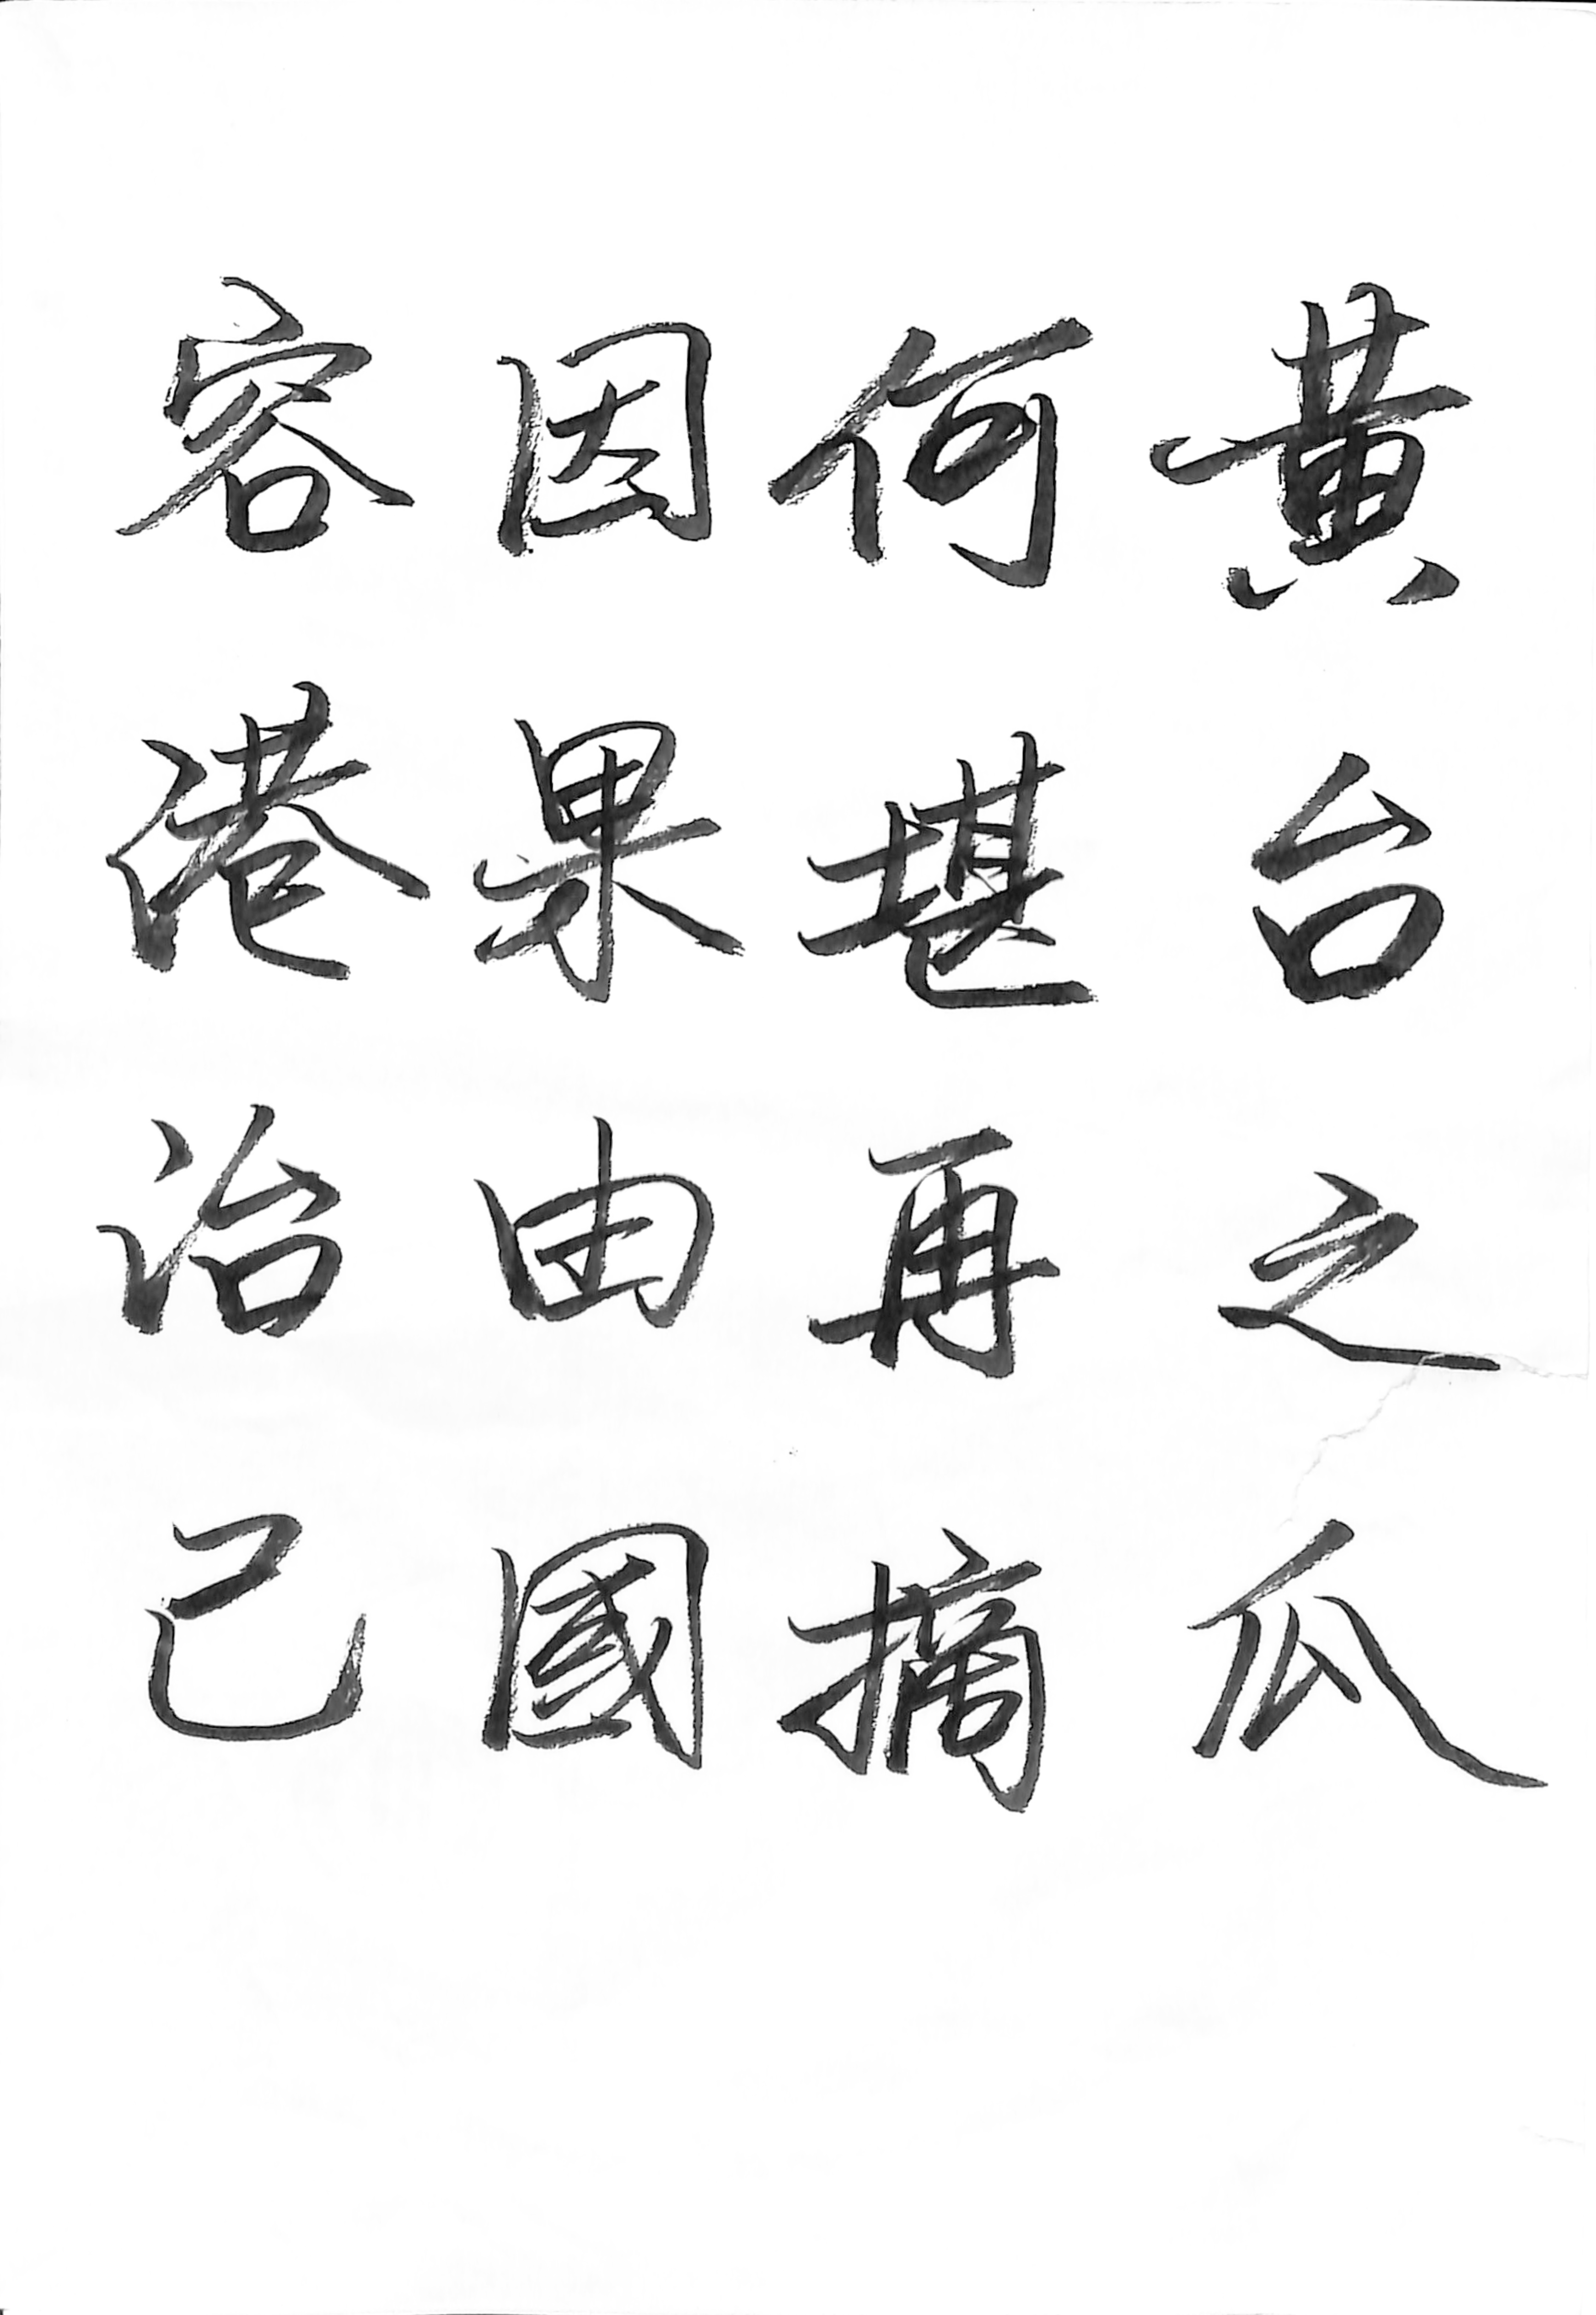 黄台之瓜
何堪再摘
因果由國
容港治己